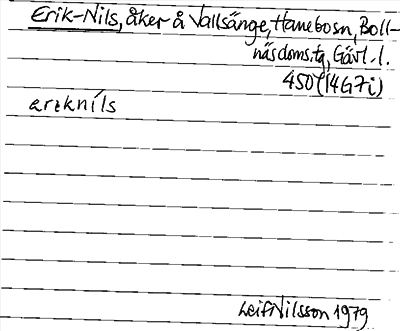 Erik-Nils, åker å Vallsänge, Hanebosn, Boll-
näs doms.tg, Gävl. l.
450 (14G7i)
areknils
Leif Nilsson 1979